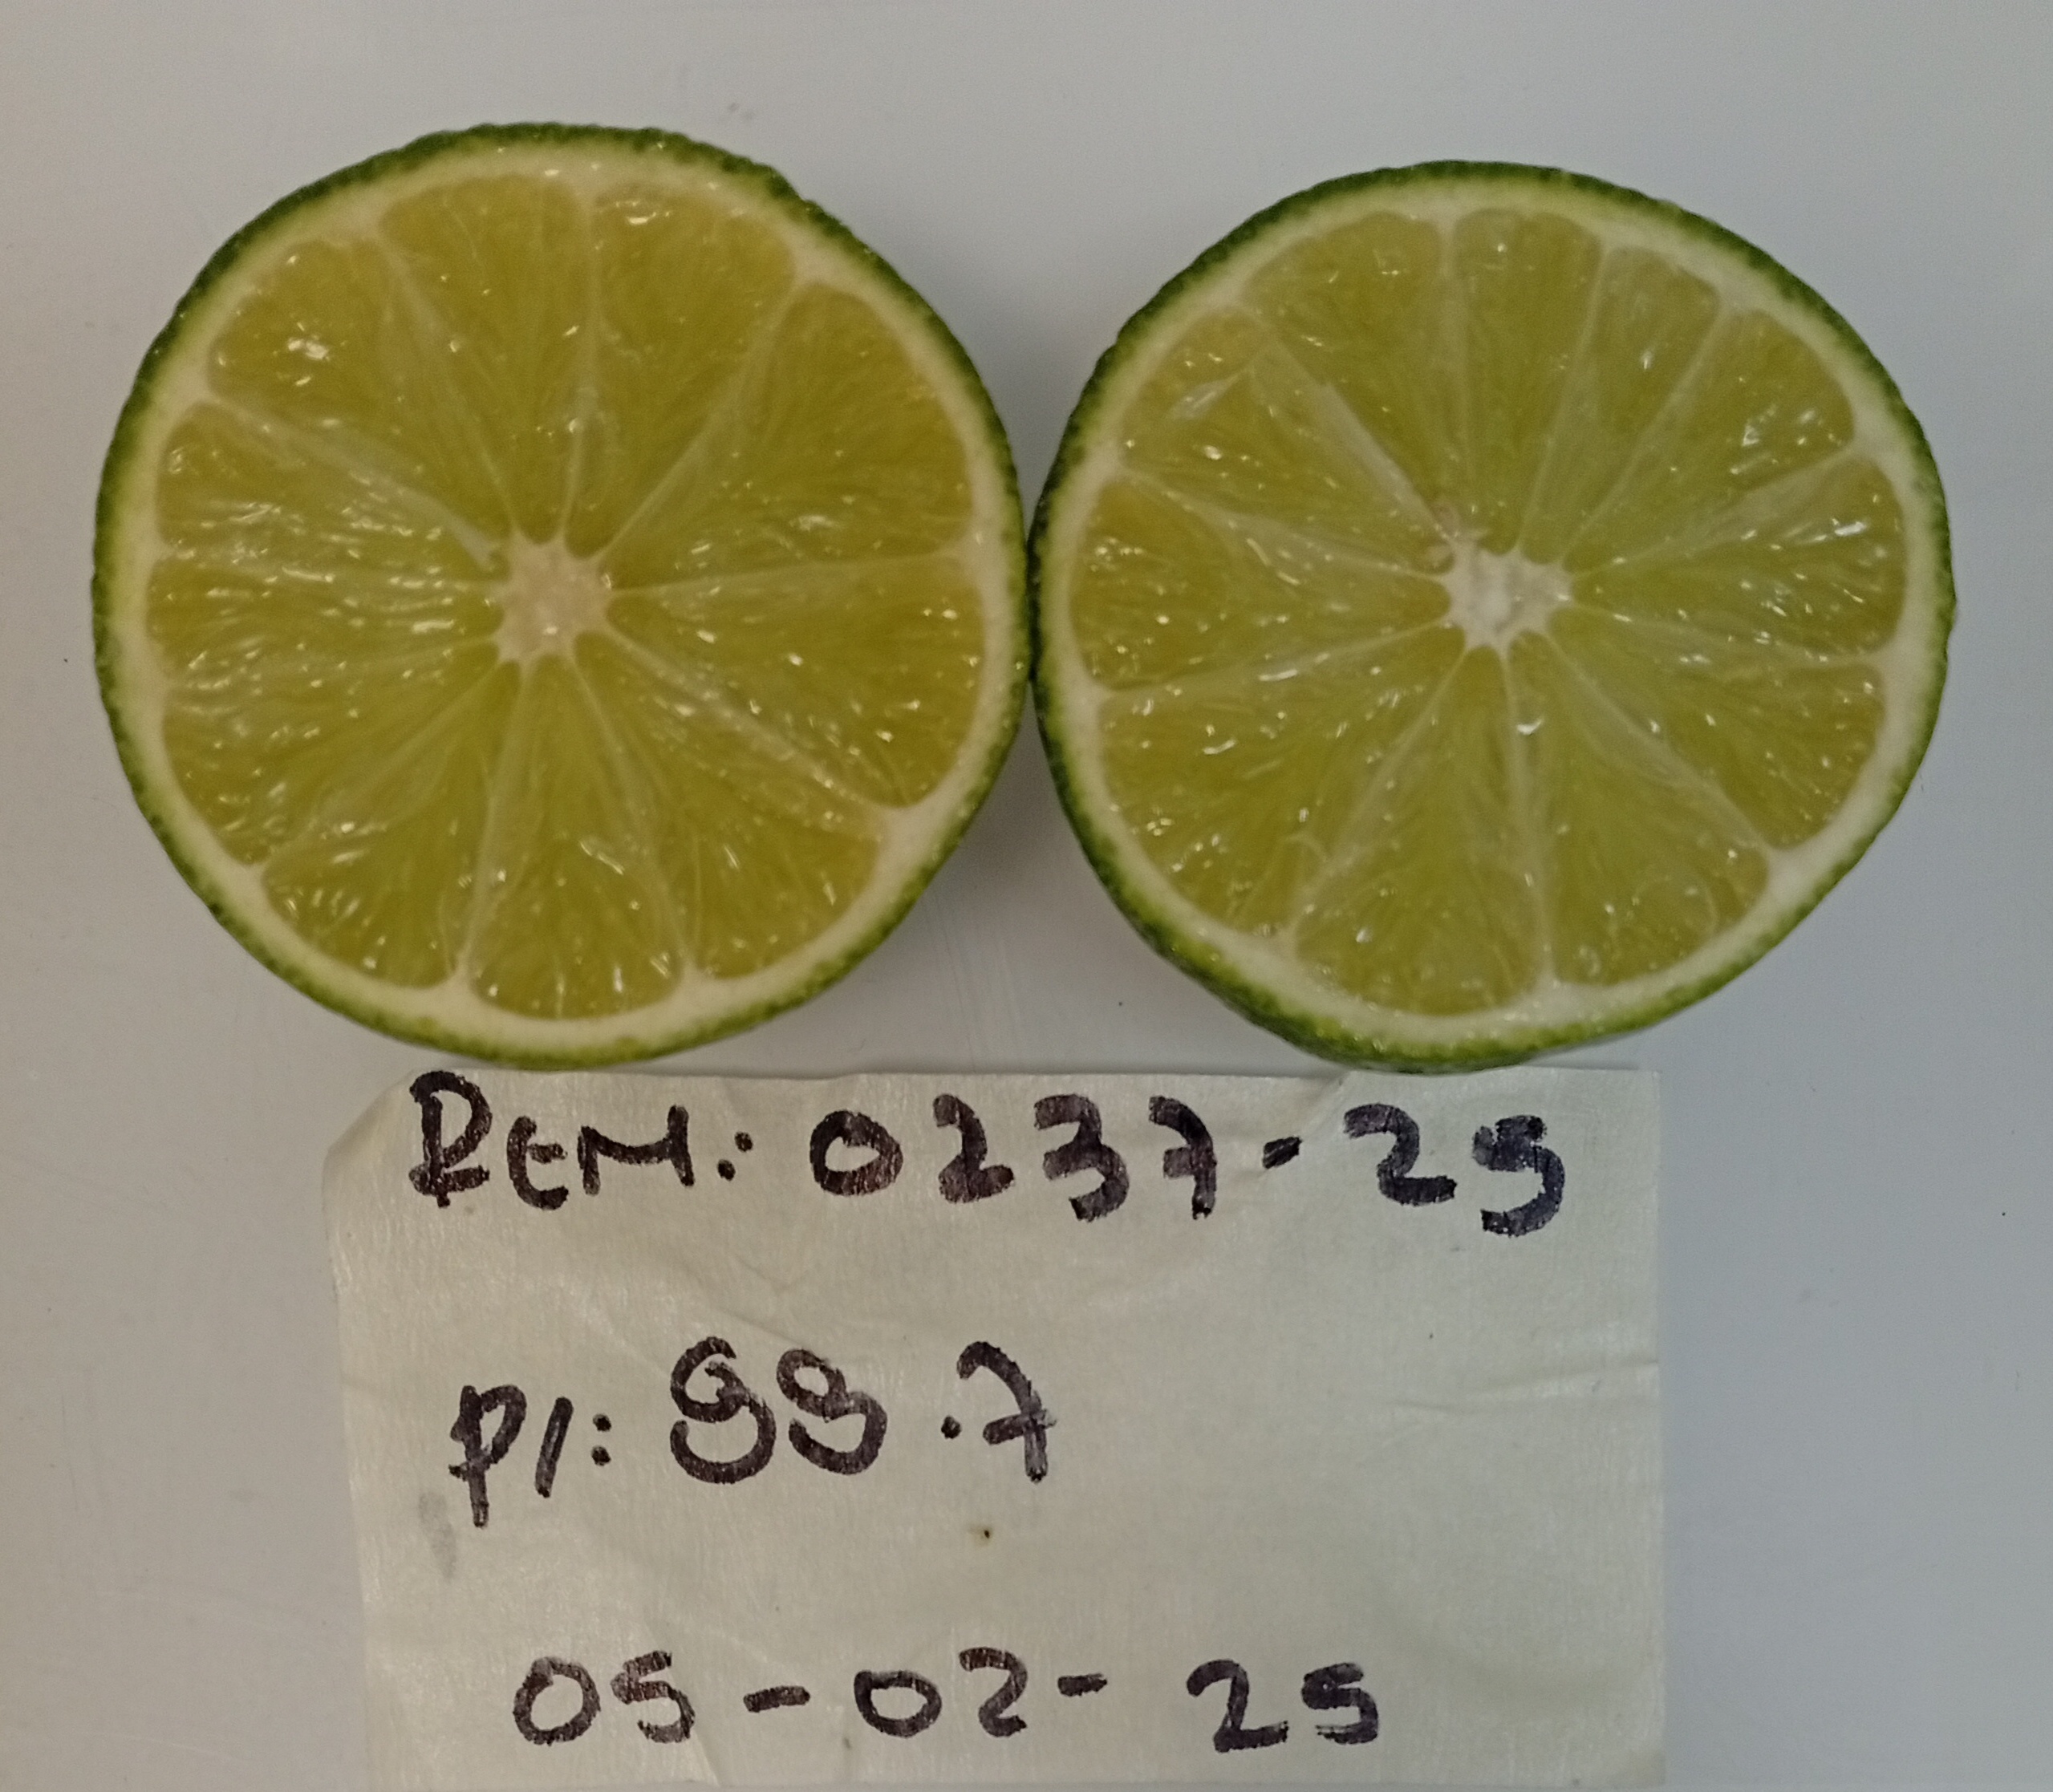 REM: 0237-25
P1: 99.7
05-02-25